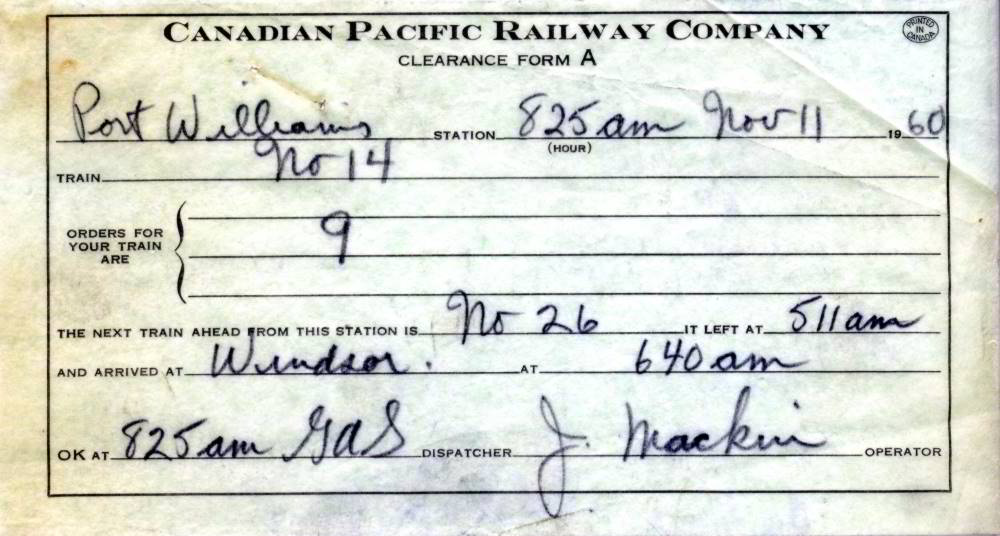 CANADIAN PACIFIC RAILWAY COMPANY
PRINTED IN CANADA
CLEARANCE FORM A
Port Williams STATION 825 am Nov 11 1960
(HOUR)
TRAIN No 14
ORDERS FOR
YOUR TRAIN
ARE
9
THE NEXT TRAIN AHEAD FROM THIS STATION IS No 26 IT LEFT AT 511 am
AND ARRIVED AT Windsor. AT 640 am
OK AT 825 am GAS DISPATCHER J. Mackin OPERATOR